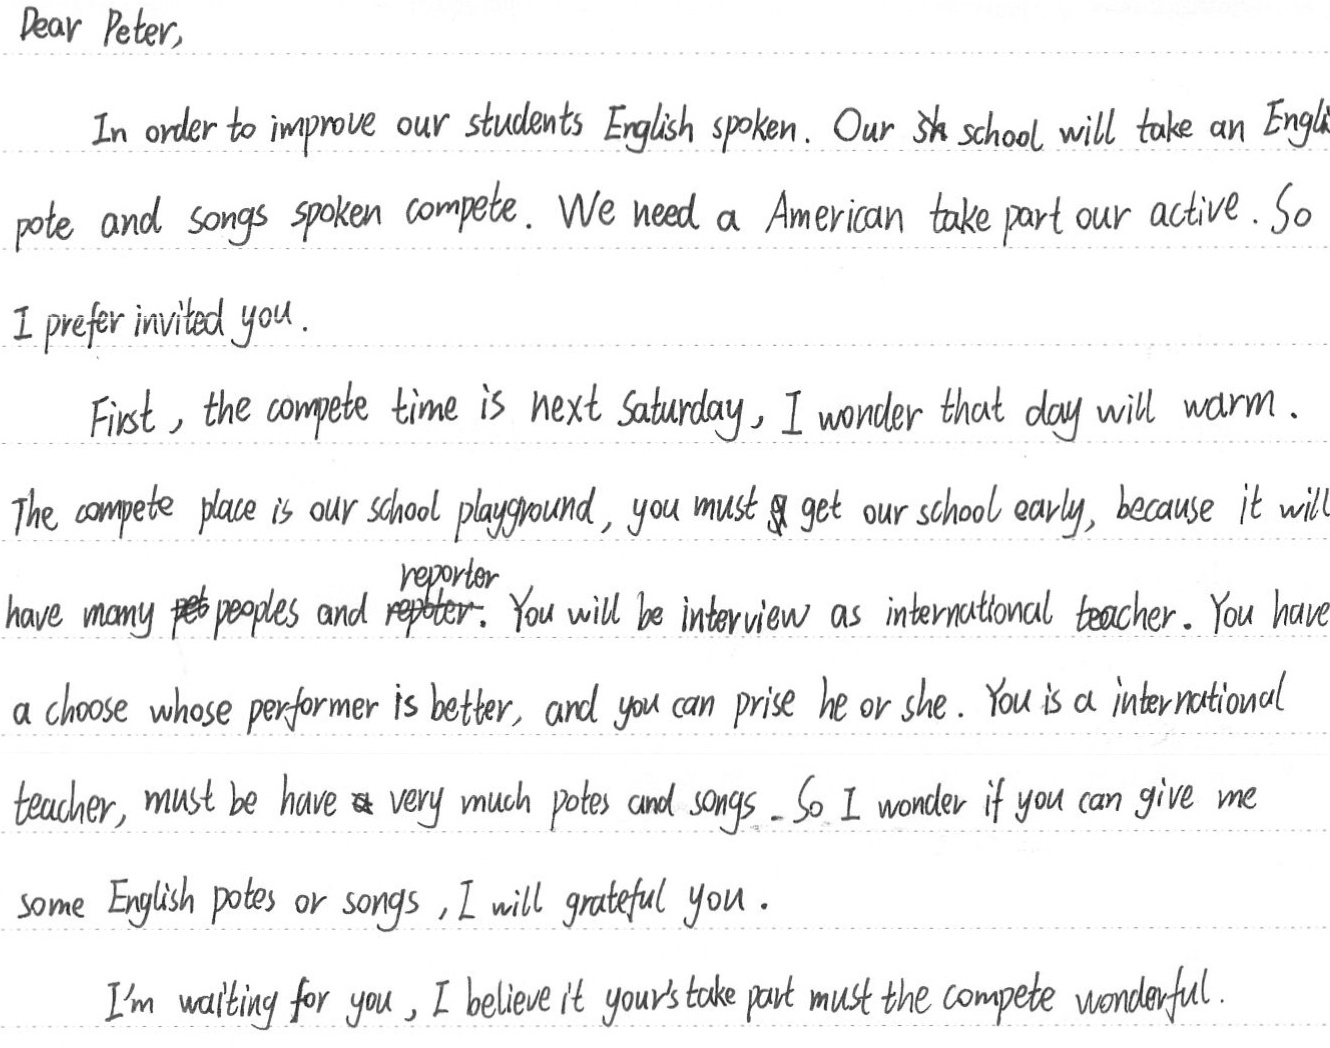 Dear Peter,
In order to improve our students English spoken. Our school will take an Engli
pote and songs spoken compete. We need a American take part our active. So
I prefer invited you.
First, the compete time is next Saturday, I wonder that day will warm.
The compete place is our school playground, you must get our school early, because it will
reporter
have many peoples and repoter. You will be interview as international teacher. You have
a choose whose performer is better, and you can prise he or she. You is a international
teacher, must be have very much potes and songs. So I wonder if you can give me
some English potes or songs, I will grateful you.
I'm waiting for you, I believe it your's take part must the compete wonderful.